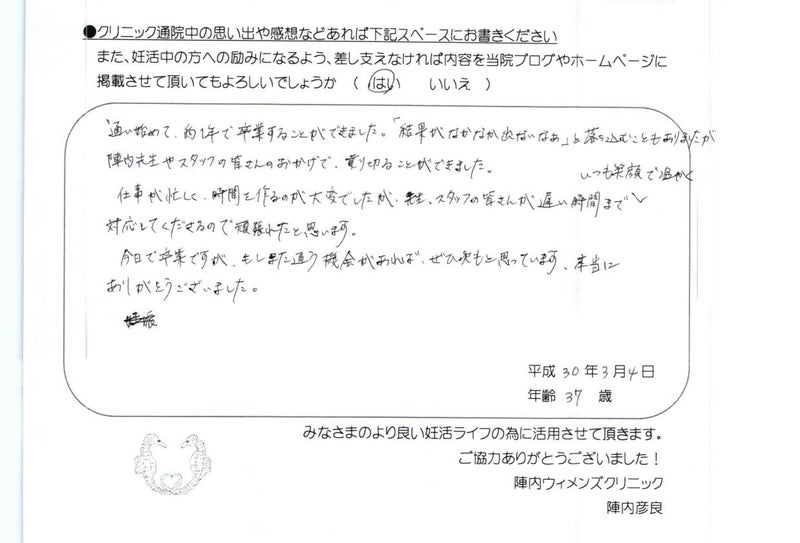 ●クリニック通院中の思い出や感想などあれば下記スペースにお書きください
また、妊活中の方への励みになるよう、差し支えなければ内容を当院ブログやホームページに
掲載させて頂いてもよろしいでしょうか （ はい いいえ ）
通い始めて、約1年で卒業することができました。「結果がなかなか出ないなぁ」と落ち込むこともありましたが
陣内先生やスタッフの皆さんのおかげで、乗り切ることができました。
いつも笑顔で温かく
仕事が忙しく、時間を作るのが大変でしたが、先生、スタッフの皆さんが遅い時間まで
対応してくださるので頑張れたと思います。
今日で卒業ですが、もしまた通う機会があれば、ぜひ次もと思っています。本当に
ありがとうございました。
平成 30 年 3 月 4 日
年齢 37 歳
みなさまのより良い妊活ライフの為に活用させて頂きます。
ご協力ありがとうございました！
陣内ウィメンズクリニック
陣内彦良